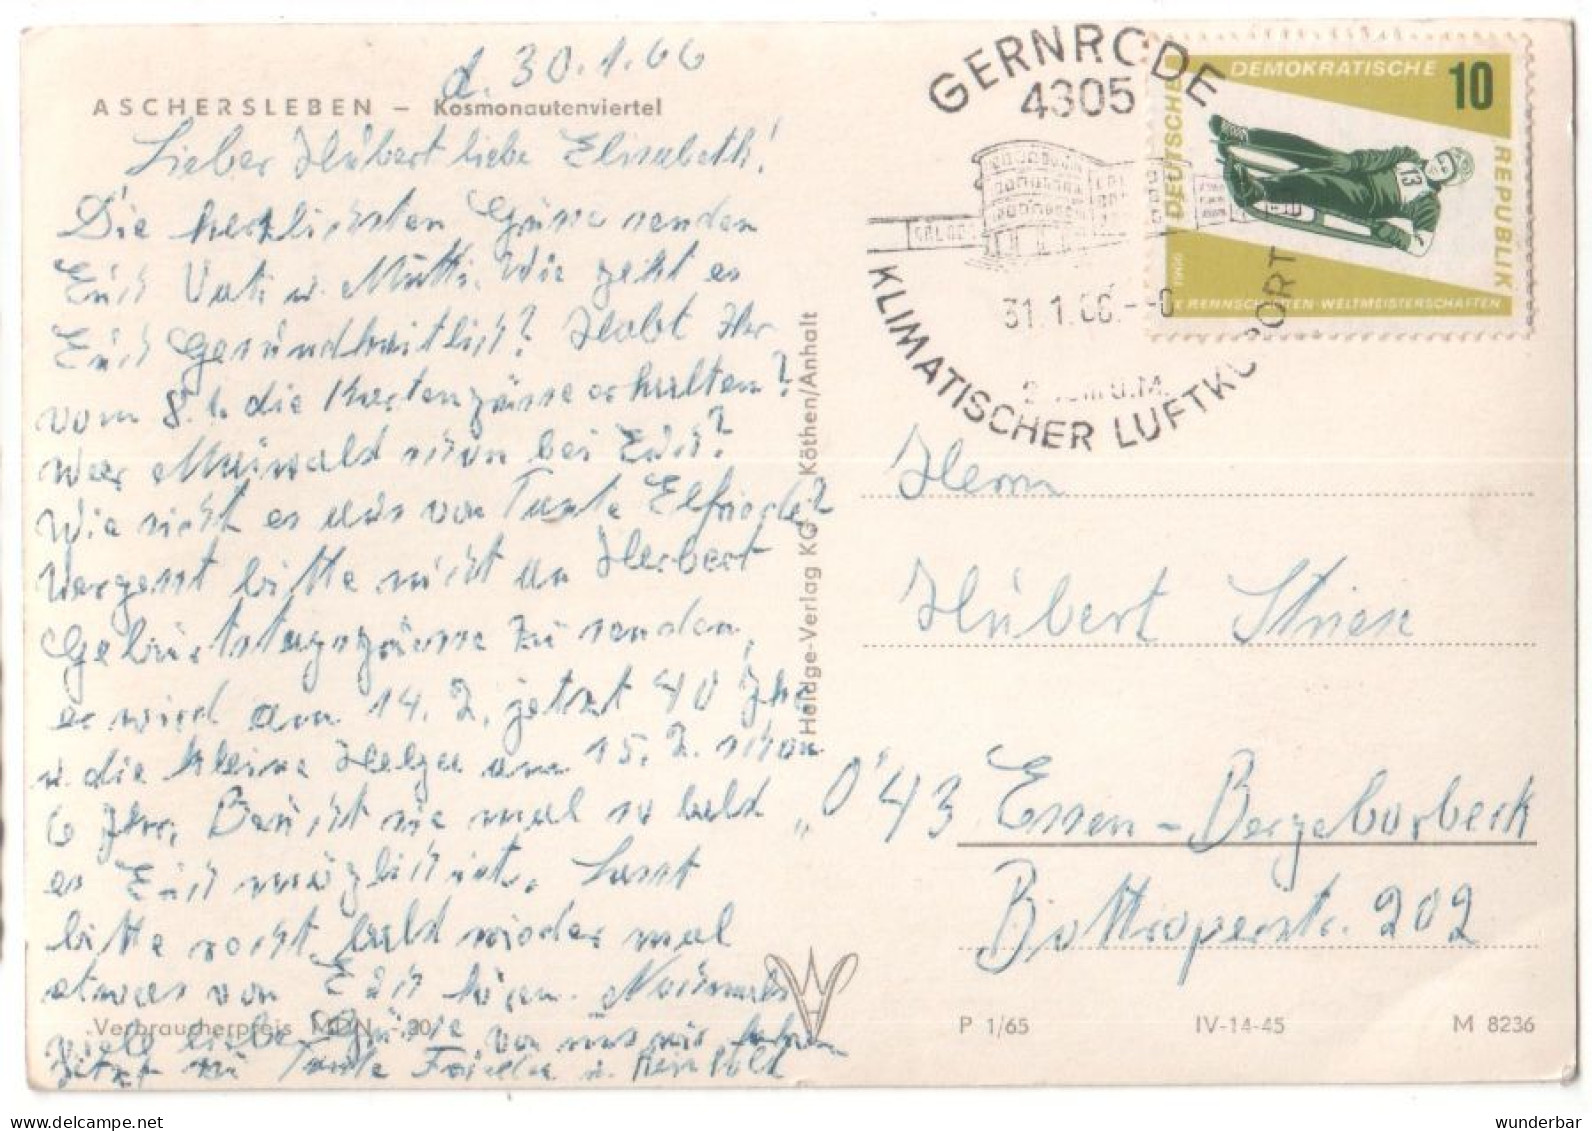 d. 30.1.66
ASCHERSLEBEN – Kosmonautenviertel
Lieber Hubert liebe Elisabeth!
Die herzlichsten Grüsse senden
Euch Vati u. Mutti. Wie geht es
Euch Gesundheitlich? Habt Ihr
vom 8.1. die Kartengrüsse erhalten?
War Maiwald schon bei Euch?
Wie sieht es aus von Tante Elfriede?
Vergesst bitte nicht an Herbert
Geburtstagsgrüsse zu senden,
er wird am 14. 2. jetzt 40 Jhr
u. die kleine Helga am 15. 2. schon
6 Jhr. Besucht sie mal so bald
es Euch möglich ist. Lasst
bitte recht bald wieder mal
etwas von Euch hören. Nochmals
viele liebe Grüsse von uns wir fahren
jetzt zu Tante Frieda u. Reinhold
Verbraucherpreis MDN -.20
Heldge-Verlag KG, Köthen/Anhalt
GERNRODE
4305
31.1.66.-
KLIMATISCHER LUFTKURORT
DEUTSCHE DEMOKRATISCHE REPUBLIK
10
13
1966
X RENNSCHLITTEN-WELTMEISTERSCHAFTEN
Herrn
Hubert
"0" 43 Essen-Bergeborbeck
Bottroperstr. 202
P 1/65 IV-14-45 M 8236
www.delcampe.net
wunderbar